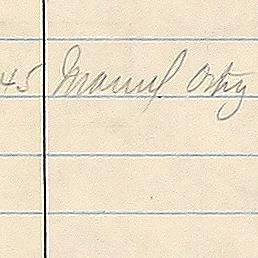 45 Manuel Ortiz